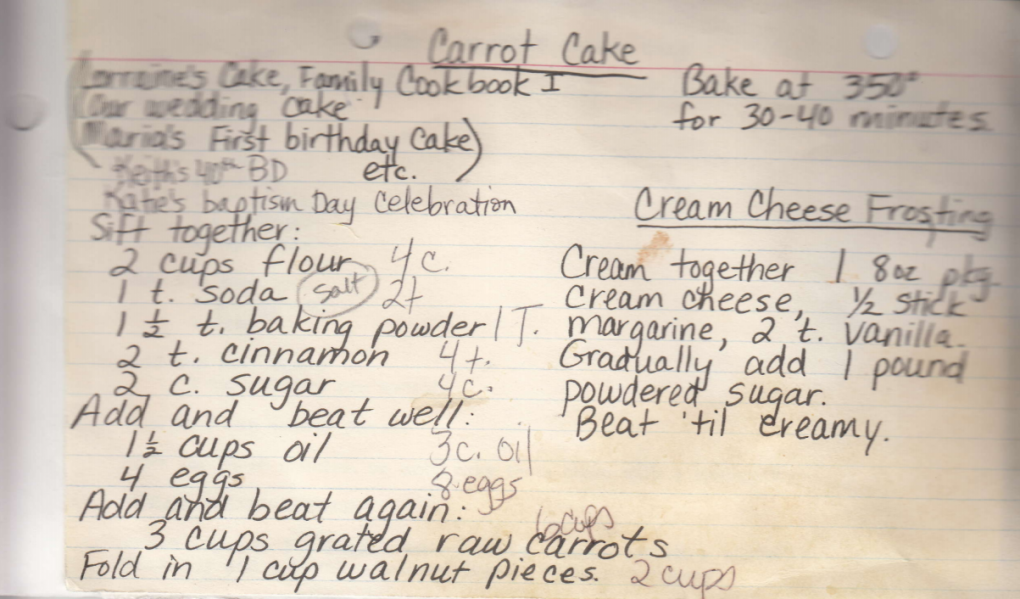 Carrot Cake
Lorraine's Cake, Family Cookbook I
Our wedding cake
Maria's First birthday Cake
Keith's 40th BD etc.
Katie's baptism Day Celebration
Bake at 350°
for 30-40 minutes
Sift together:
2 cups flour 4 c.
1 t. soda (salt) 2t
1 ½ t. baking powder 1 T.
2 t. cinnamon 4 t.
2 c. sugar 4c.
Add and beat well:
1½ cups oil 3c. oil
4 eggs 8 eggs
Add and beat again:
6 cups
3 cups grated raw carrots
Fold in 1 cup walnut pieces. 2 cups
Cream Cheese Frosting
Cream together 1 8oz pkg.
Cream cheese, ½ stick
margarine, 2 t. vanilla.
Gradually add 1 pound
powdered sugar.
Beat 'til creamy.